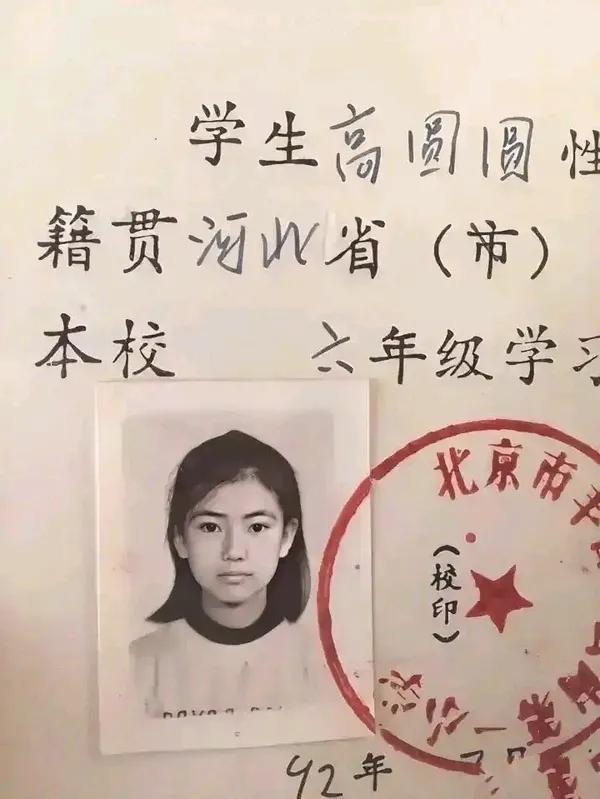 学生高圆圆性
籍贯河北省（市）
本校 六年级学习
北京市
（校印）
92年